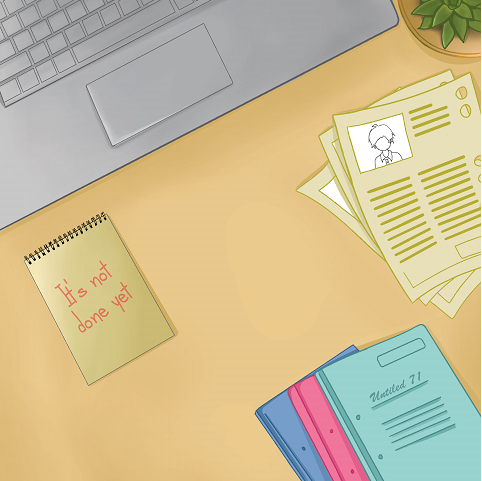 It's not
done yet
Untiled 71